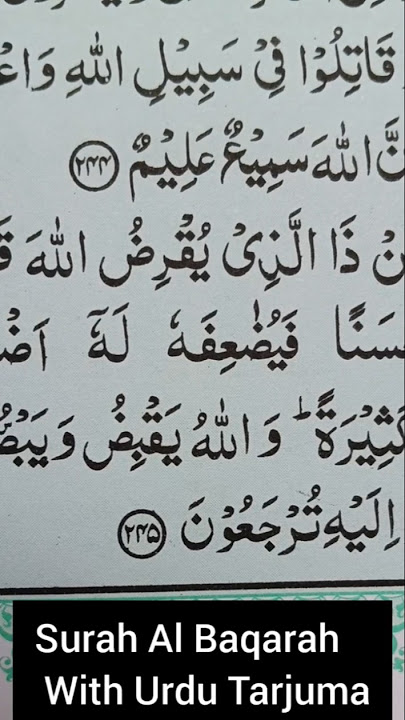 قَاتِلُوْا فِیْ سَبِیْلِ اللّٰهِ وَاعْ
نَّ اللّٰهَ سَمِیْعٌ عَلِیْمٌ ﴿۲۴۴﴾
نْ ذَا الَّذِیْ یُقْرِضُ اللّٰهَ قَ
سَنًا فَیُضٰعِفَهٗ لَهٗۤ اَضْ
كَثِیْرَةً ؕ وَاللّٰهُ یَقْبِضُ وَیَبْصُ
اِلَیْهِ تُرْجَعُوْنَ ﴿۲۴۵﴾
Surah Al Baqarah
With Urdu Tarjuma